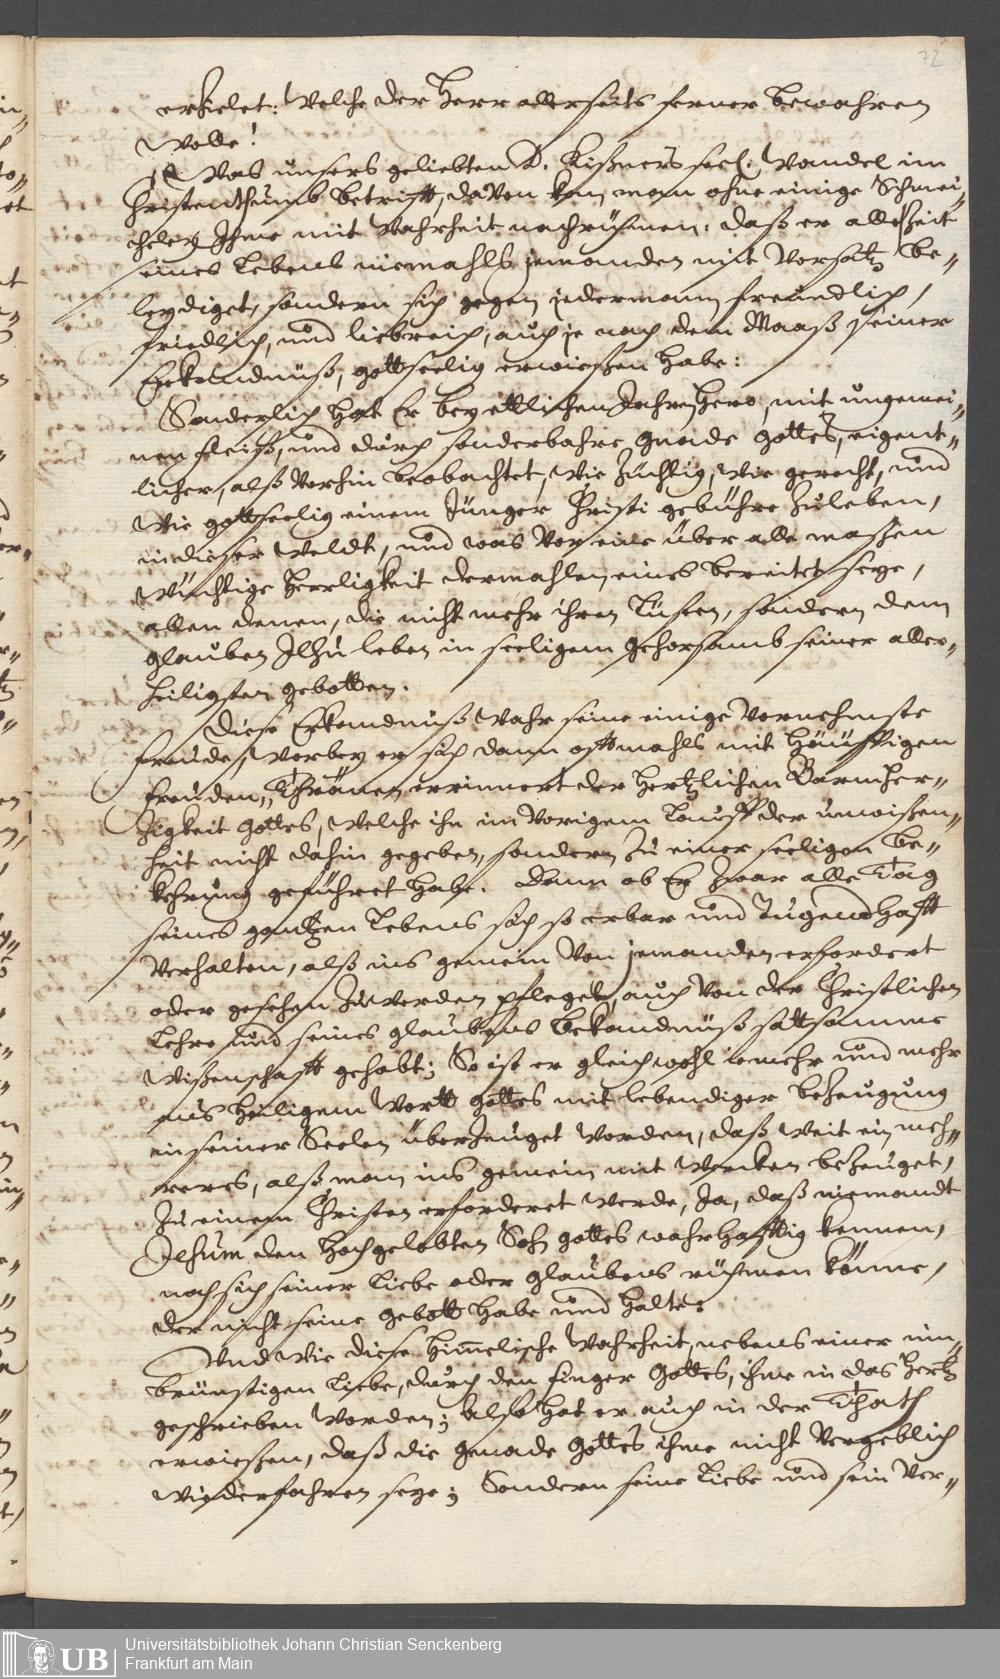 72
erhielet: Welche der Herr allerseits ferner bewahren
Wolle!
Was unsers geliebten D. Kißners seel. Wandel im
Christenthumb betrifft, davon kan man ohne einige Schmei,
cheley Ihme mit Wahrheit nachrühmen: daß er alle Zeit
seines Lebens niemahls jemanden mit Vorsatz be„
leydiget, sondern sich gegen jedermann freundlich,
friedlich, und liebreich, auch je nach dem Maaß seiner
Erkandnüß, gottseelig erwießen habe:
Sonderlich hat Er bey ettlichen Jahren hero, mit ungemei„
nen fleiß, und durch sonderbahre gnade Gottes, eigent„
licher, alß Vorhin beobachtet, Wie Züchtig, Wie gerecht, und
Wie gottseelig einem Jünger Christi gebühre Zuleben,
in dießer Weldt, und was Vor eine über alle maßen
Wüchtige Herrligkeit dermahlen eines bereitet seye,
allen denen, die nicht mehr ihren Lüsten, sondern dem
glauben JEsu leben in seeligem gehorsamb seiner aller„
heiligsten gebotten.
Diese Erkandnüß Wahr seine einige Vornehmste
freude, Worbey er sich dann offtmahls mit häuffigen
freuden„Thränen errinnert der hertzlichen Barmher„
zigkeit Gottes, Welche ihn im Vorigem Lauff der unwißen„
heit nicht dahin gegeben, sondern Zu einer seeligen be„
kehrung geführet habe. Dann ob Er Zwar alle Tag
seines gantzen Lebens sich so erbar und Tugendhafft
Verhalten, alß ins gemein Von jemanden erfordert
oder gesehen Zu werden pfleget, auch Von der Christlichen
Lehre und seines glaubens bekandnüß sattsamme
Wißenschafft gehabt; So ist er gleichwohl iemehr und mehr
aus heiligem Wortt Gottes mit lebendiger beZeugung
in seiner Seelen überZeuget Worden, daß Weit ein meh„
reres, alß man ins gemein mit Wercken beZeuget,
Zu einem Christen erforderet Werde, Ja, daß niemandt
JEsum den hochgelobten Sohn Gottes wahrhafftig kennen,
noch sich seiner Liebe oder glaubens rühmen könne,
der nicht seine gebott habe und halte:
Und Wie diese himmlische Wahrheit, nebens einer inn„
brünstigen Liebe, durch den finger Gottes, ihme in das Hertz
geschrieben Worden; also hat er auch in der That
erwießen, daß die gnade Gottes ihme nicht Vergeblich
Wiederfahren seye; Sondern seine Liebe und sein Ver„
UB
Universitätsbibliothek Johann Christian Senckenberg
Frankfurt am Main